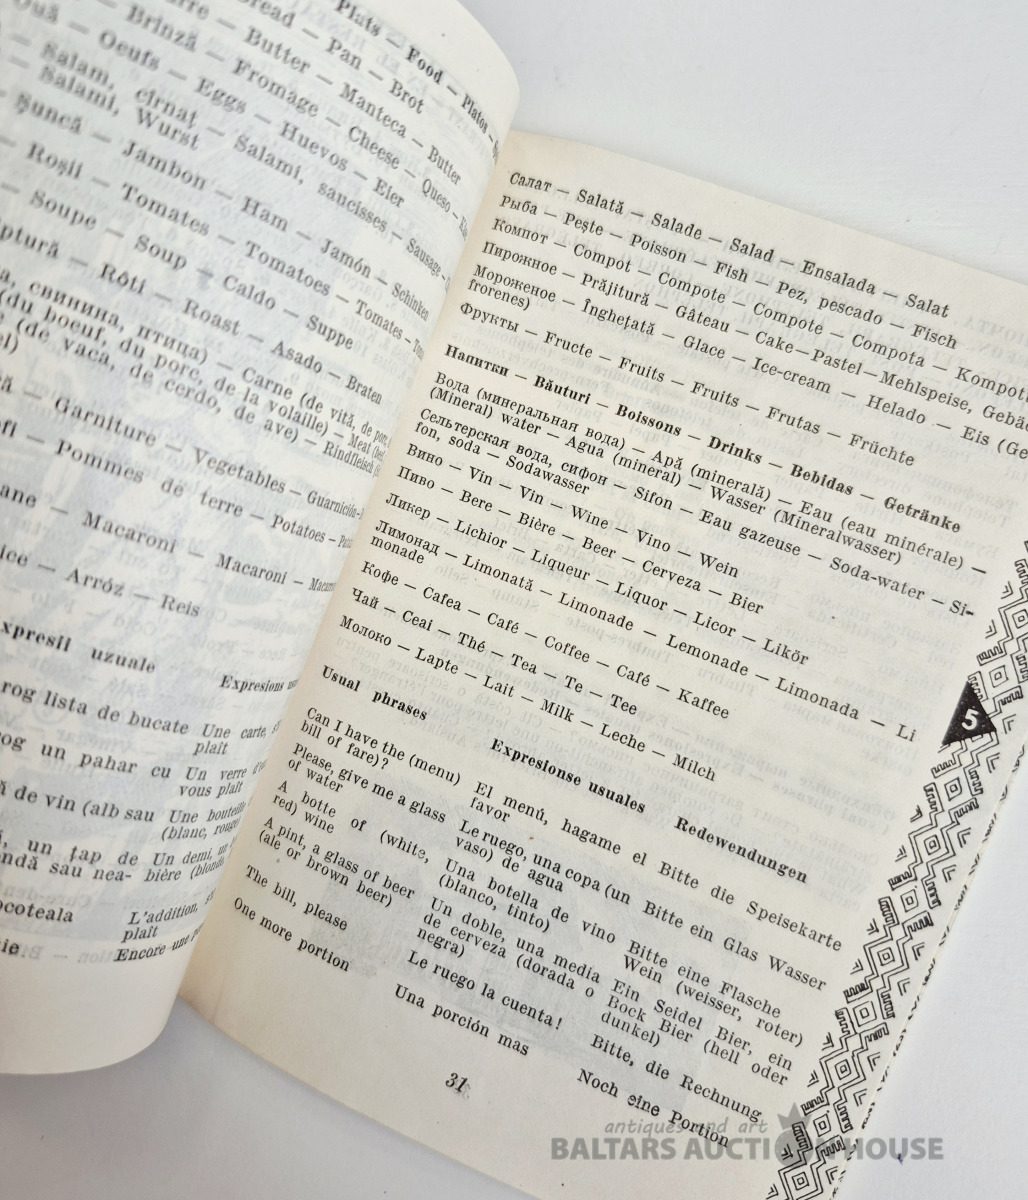 Plats — Food — Platos —
Bread — Pan — Brot
Butter — Manteca — Butter
Brinză — Fromage — Cheese — Queso —
Ouă — Oeufs — Eggs — Huevos — Eier
Salam, cîrnaţ — Salami, saucisses — Sausage —
Salami, Wurst
Şuncă — Jambon — Ham — Jamón — Schinken
Roşii — Tomates — Tomatoes — Tomates —
— Soupe — Soup — Caldo — Suppe
— Rôti — Roast — Asado — Braten
свинина, птица) — Carne (de vită, de porc
(du boeuf, du porc, de la volaille) — Meat
(de vaca, de cerdo, de ave) — Rindfleisch
— Garniture — Vegetables — Guarnición
— Pommes de terre — Potatoes —
— Macaroni — Macaroni —
— Arróz — Reis
uzuale
Expresions
rog lista de bucate Une carte,
plaît
un pahar cu Un verre
vous plaît
de vin (alb sau Une bouteille
(blanc, rouge
un ţap de Un demi, un
sau nea- bière (blonde
L'addition,
plaît
Encore une
Салат — Salată — Salade — Salad — Ensalada — Salat
Рыба — Peşte — Poisson — Fish — Pez, pescado — Fisch
Компот — Compot — Compote — Compote — Compota — Kompott
Пирожное — Prăjitură — Gâteau — Cake—Pastel—Mehlspeise, Gebäc
Мороженое — Îngheţată — Glace — Ice-cream — Helado — Eis (Ge
frorenes)
Фрукты — Fructe — Fruits — Fruits — Frutas — Früchte
Напитки — Băuturi — Boissons — Drinks — Bebidas — Getränke
Вода (минеральная вода) — Apă (minerală) — Eau (eau minérale) —
(Mineral) water — Agua (mineral) — Wasser (Mineralwasser)
Сельтерская вода, сифон — Sifon — Eau gazeuse — Soda-water — Si-
fon, soda — Sodawasser
Вино — Vin — Vin — Wine — Vino — Wein
Пиво — Bere — Bière — Beer — Cerveza — Bier
Ликер — Lichior — Liqueur — Liquor — Licor — Likör
Лимонад — Limonată — Limonade — Lemonade — Limonada — Li
monade
Кофе — Cafea — Café — Coffee — Café — Kaffee
Чай — Ceai — Thé — Tea — Te — Tee
Молоко — Lapte — Lait — Milk — Leche — Milch
Usual phrases Expresionse usuales Redewendungen
Can I have the (menu) El menú, hagame el Bitte die Speisekarte
bill of fare)? favor
Please, give me a glass Le ruego, una copa (un Bitte ein Glas Wasser
of water vaso) de agua
A botte of (white, Una botella de vino Bitte eine Flasche
red) wine (blanco, tinto) Wein (weisser, roter)
A pint, a glass of beer Un doble, una media Ein Seidel Bier, ein
(ale or brown beer) de cerveza (dorada o Bock Bier (hell oder
negra) dunkel)
The bill, please Le ruego la cuenta! Bitte, die Rechnung
One more portion Una porción mas Noch eine Portion
31
5
antiques and art
BALTARS AUCTION HOUSE